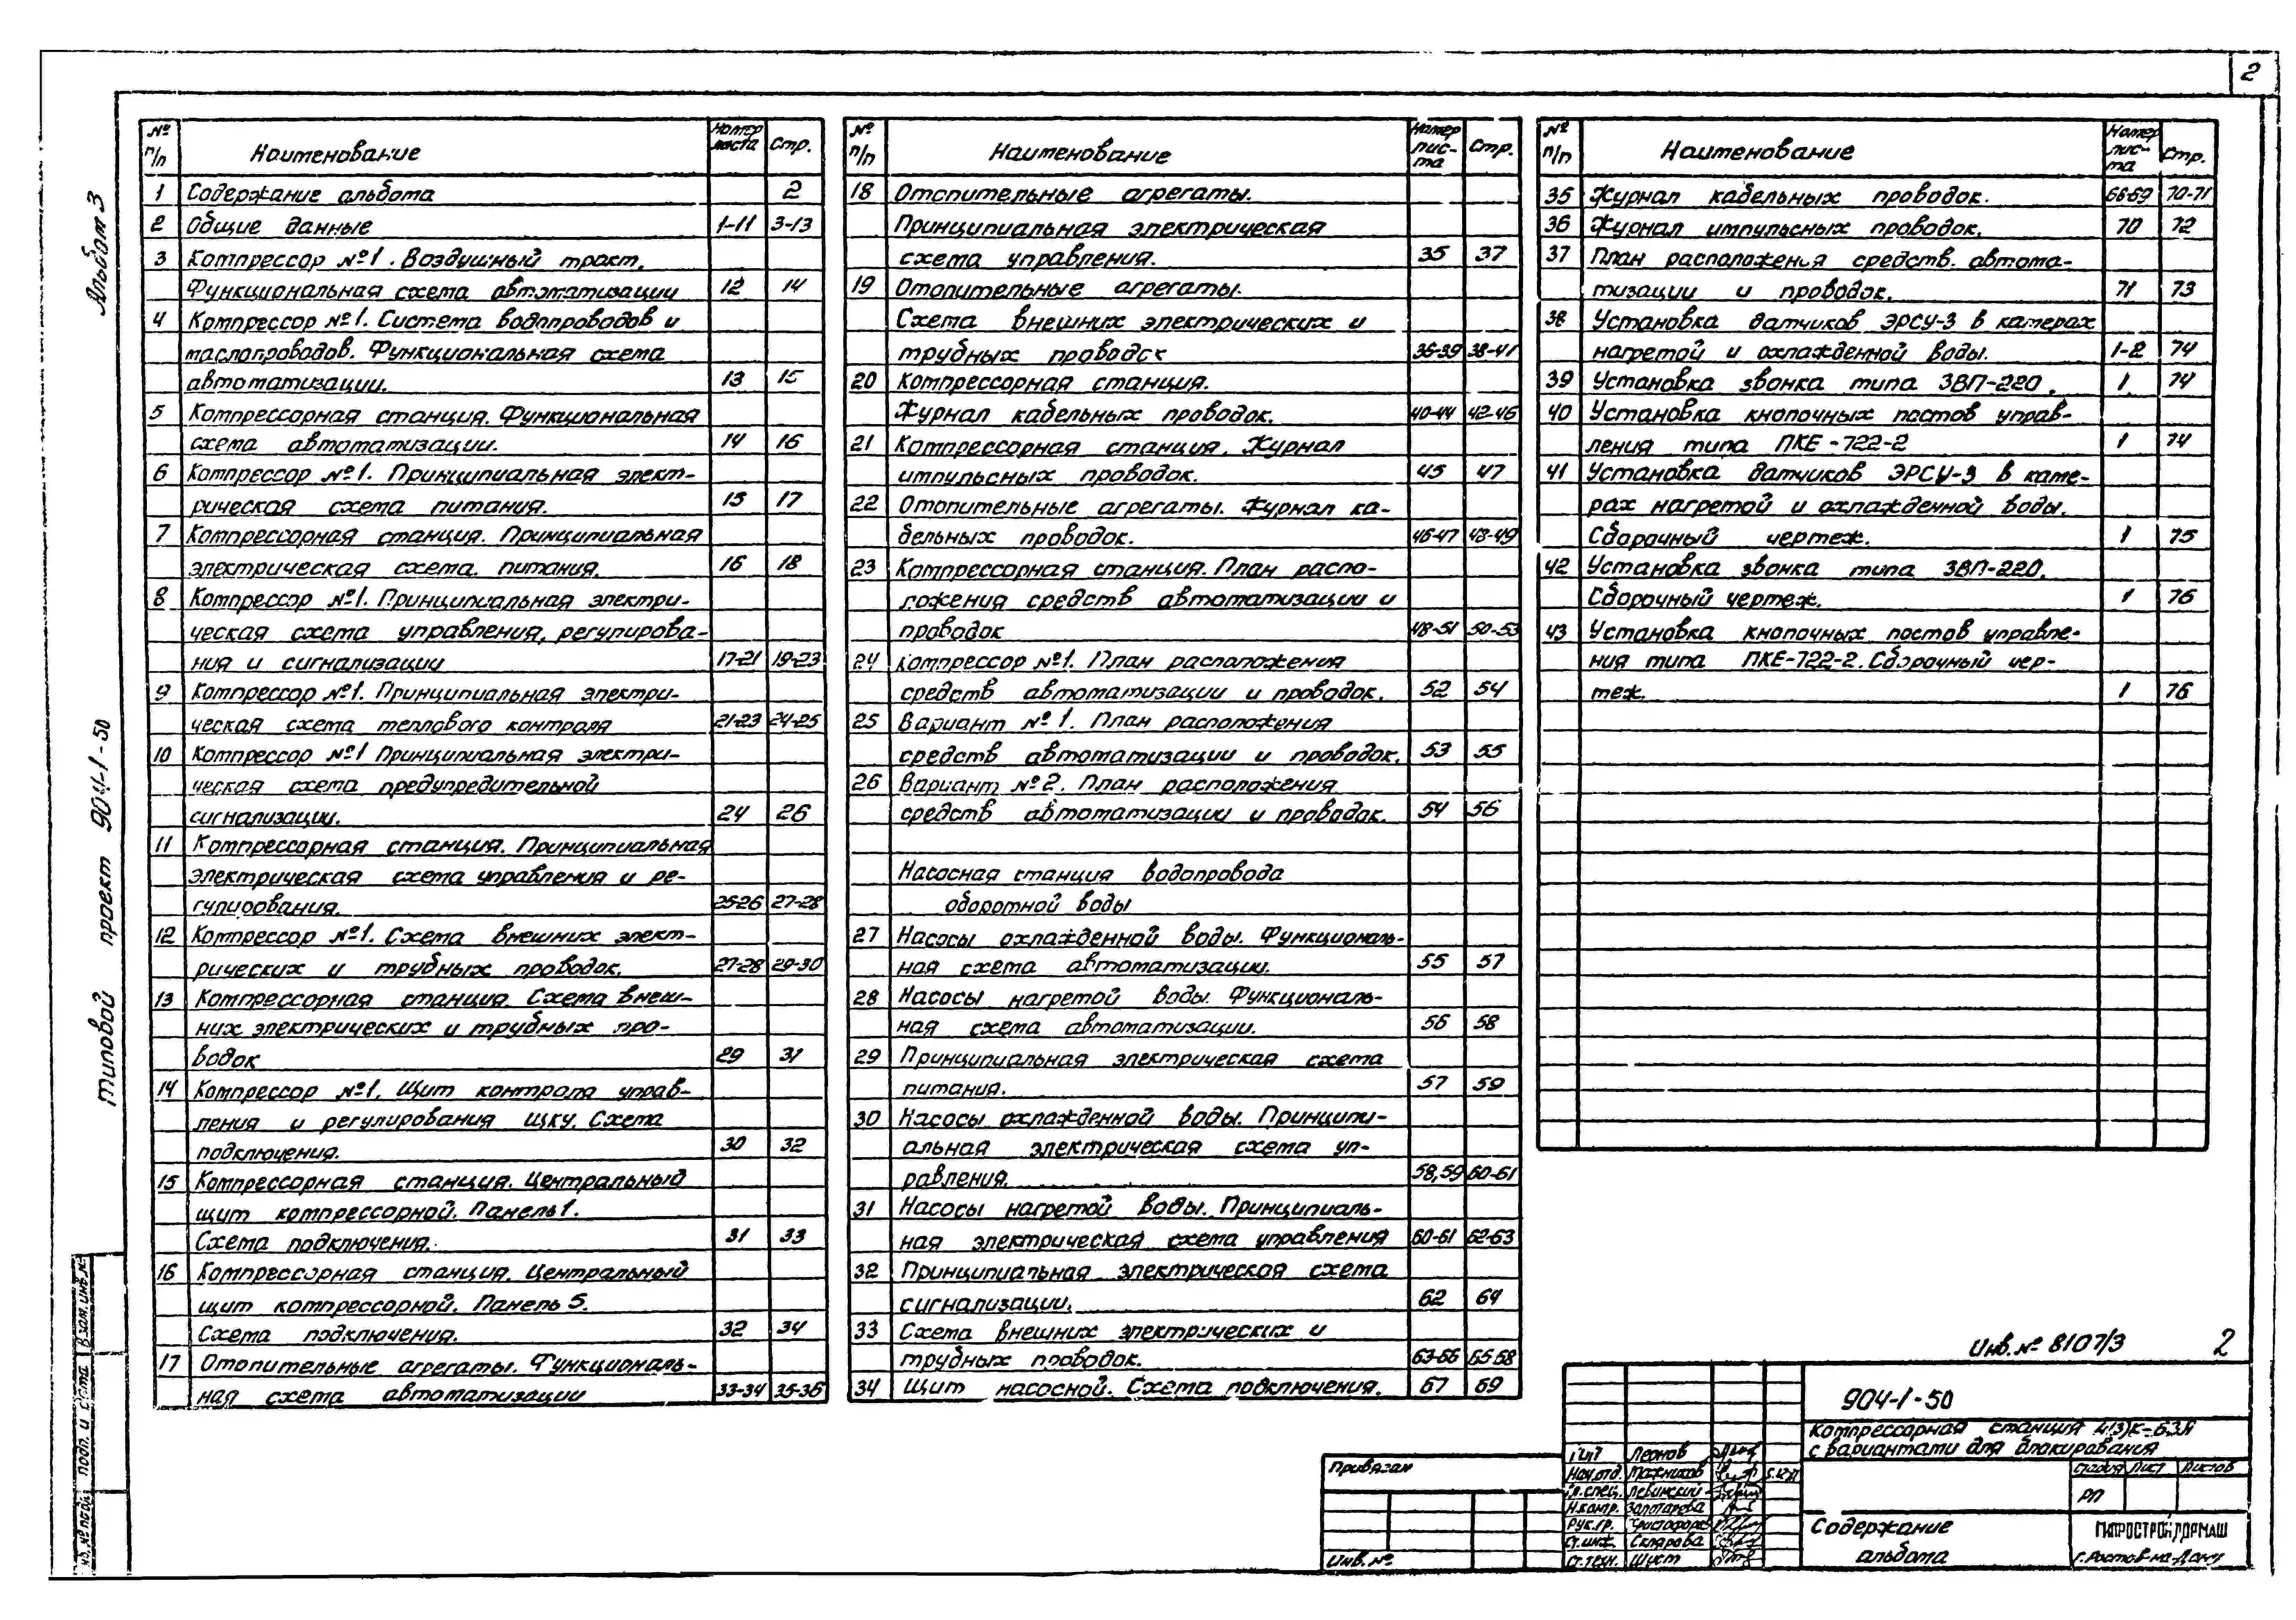 2
Альбом 3
Типовой проект 904-1-50
№ п/п Наименование Номер листа Стр.
1 Содержание альбома 2
2 Общие данные 1-11 3-13
3 Компрессор №1. Воздушный тракт.
Функциональная схема автоматизации 12 14
4 Компрессор №1. Система водопроводов и
маслопроводов. Функциональная схема
автоматизации. 13 15
5 Компрессорная станция. Функциональная
схема автоматизации. 14 16
6 Компрессор №1. Принципиальная элект-
рическая схема питания. 15 17
7 Компрессорная станция. Принципиальная
электрическая схема питания. 16 18
8 Компрессор №1. Принципиальная электри-
ческая схема управления, регулирова-
ния и сигнализации 17-21 19-23
9 Компрессор №1. Принципиальная электри-
ческая схема теплового контроля 21-23 24-25
10 Компрессор №1 Принципиальная электри-
ческая схема предупредительной
сигнализации. 24 26
11 Компрессорная станция. Принципиальная
электрическая схема управления и ре-
гулирования. 25-26 27-28
12 Компрессор №1. Схема внешних элект-
рических и трубных проводок. 27-28 29-30
13 Компрессорная станция. Схема внеш-
них электрических и трубных про-
водок 29 31
14 Компрессор №1. Щит контроля управ-
ления и регулирования ЩКУ. Схема
подключения. 30 32
15 Компрессорная станция. Центральный
щит компрессорной. Панель 1.
Схема подключения. 31 33
16 Компрессорная станция. Центральный
щит компрессорной. Панель 5.
Схема подключения. 32 34
17 Отопительные агрегаты. Функциональ-
ная схема автоматизации 33-34 35-36
№ п/п Наименование Номер лис-та Стр.
18 Отопительные агрегаты.
Принципиальная электрическая
схема управления. 35 37
19 Отопительные агрегаты.
Схема внешних электрических и
трубных проводок 36-39 38-41
20 Компрессорная станция.
Журнал кабельных проводок. 40-44 42-46
21 Компрессорная станция. Журнал
импульсных проводок. 45 47
22 Отопительные агрегаты. Журнал ка-
бельных проводок. 46-47 48-49
23 Компрессорная станция. План распо-
ложения средств автоматизации и
проводок 48-51 50-53
24 Компрессор №1. План расположения
средств автоматизации и проводок. 52 54
25 Вариант №1. План расположения
средств автоматизации и проводок. 53 55
26 Вариант №2. План расположения
средств автоматизации и проводок. 54 56
Насосная станция водопровода
оборотной воды
27 Насосы охлажденной воды. Функциональ-
ная схема автоматизации. 55 57
28 Насосы нагретой воды. Функциональ-
ная схема автоматизации. 56 58
29 Принципиальная электрическая схема
питания. 57 59
30 Насосы охлажденной воды. Принципи-
альная электрическая схема уп-
равления. 58,59 60-61
31 Насосы нагретой воды. Принципиаль-
ная электрическая схема управления 60-61 62-63
32 Принципиальная электрическая схема
сигнализации. 62 64
33 Схема внешних электрических и
трубных проводок. 63-66 65-68
34 Щит насосной. Схема подключения. 67 69
№ п/п Наименование Номер лис-та Стр.
35 Журнал кабельных проводок. 68-69 70-71
36 Журнал импульсных проводок. 70 72
37 План расположения средств автома-
тизации и проводок. 71 73
38 Установка датчиков ЭРСУ-3 в камерах
нагретой и охлажденной воды. 1-2 74
39 Установка звонка типа ЗВП-220. 1 74
40 Установка кнопочных постов управ-
ления типа ПКЕ-722-2 1 74
41 Установка датчиков ЭРСУ-3 в каме-
рах нагретой и охлажденной воды.
Сборочный чертеж. 1 75
42 Установка звонка типа ЗВП-220.
Сборочный чертеж. 1 76
43 Установка кнопочных постов управле-
ния типа ПКЕ-722-2. Сборочный чер-
теж. 1 76
Инв. № 8107/3 2
904-1-50
Компрессорная станция 4(3)К-63А
с вариантами для блокирования
Стадия Лист Листов
РП
Содержание
альбома
ГИПРОСТРОЙДОРМАШ
г. Ростов-на-Дону
ГИП Леонов
Нач. отд.
Гл. спец. Левинский
Н. контр. Золотарева
Рук. гр.
Ст. инж. Склярова
Ст. техн. Шуст
Привязан
Инв. №
Взам. инв. №
Подп. и дата
Инв. № подл.